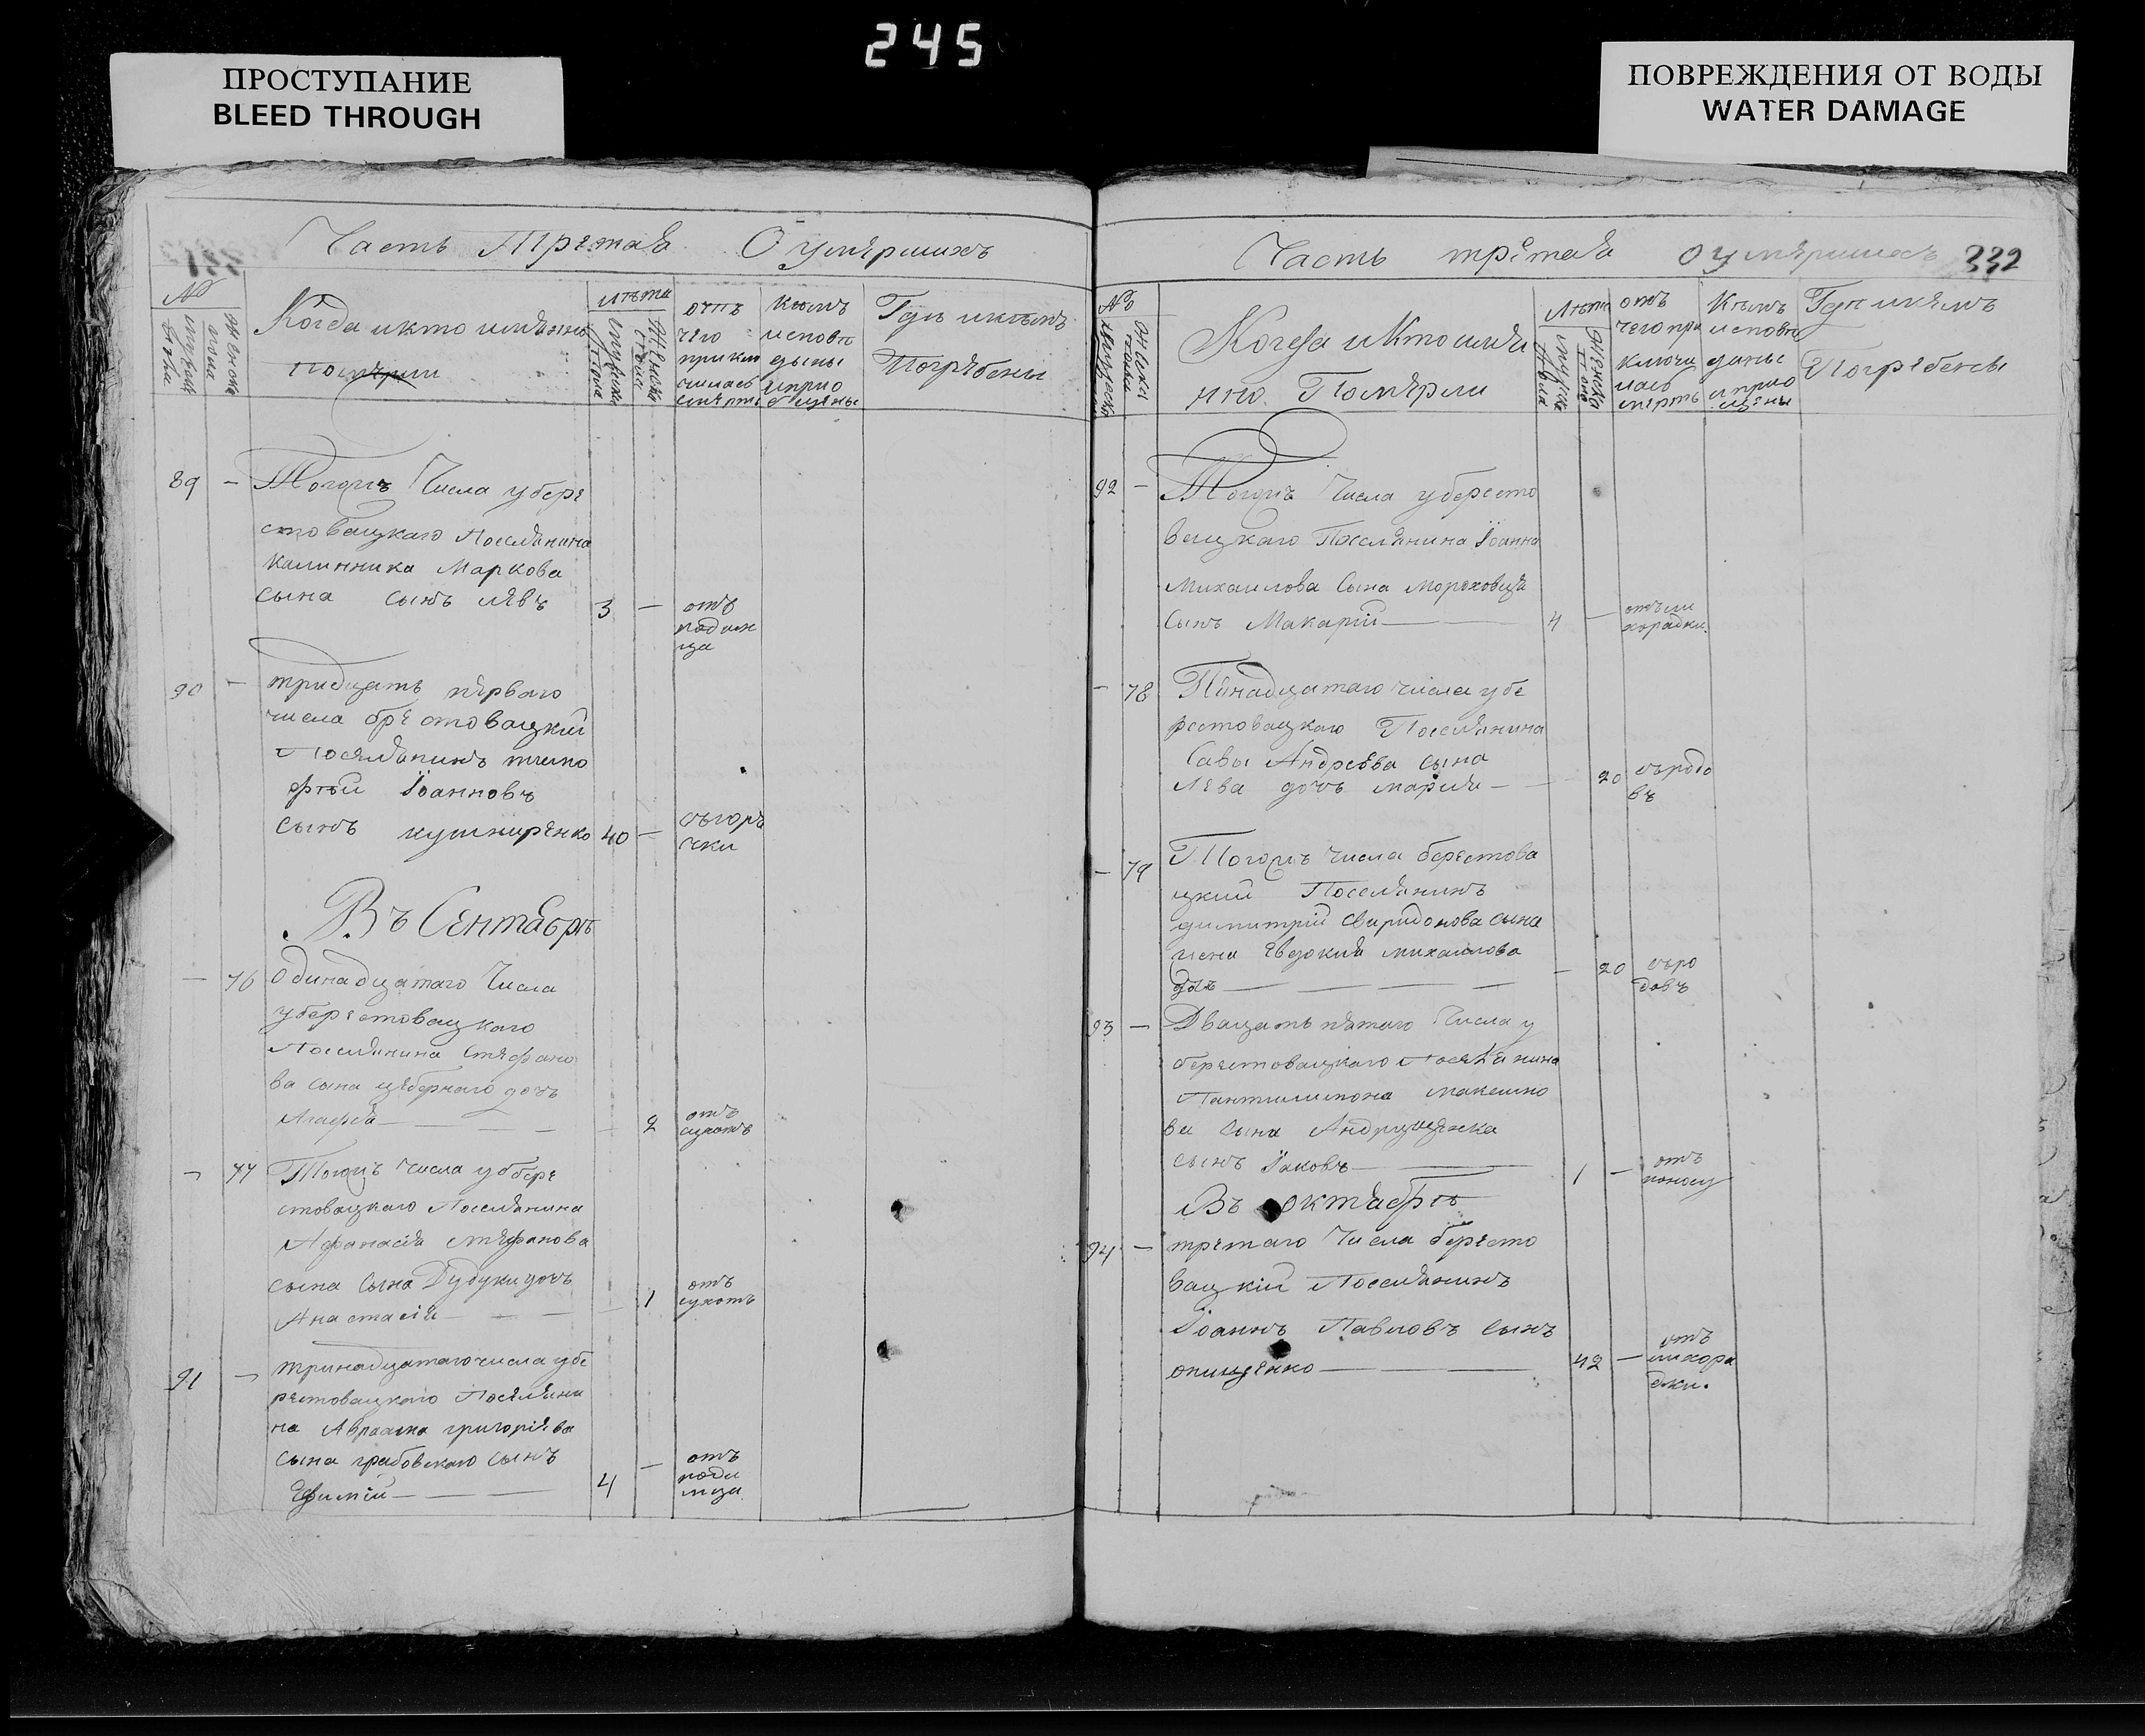 245
ПРОСТУПАНИЕ
BLEED THROUGH
ПОВРЕЖДЕНИЯ ОТ ВОДЫ
WATER DAMAGE
Часть Третая О умершихъ
№
мужеска
женска
пола
Когда и кто имянно
померли
лѣта
мужеска
женска
отъ
чего
приклю
чилась
смерть
кѣмъ
исповѣ
дыны
и прио
бщены
Гдѣ и кѣмъ
Погребены
89 — Тогожъ Числа у бере
стовацкаго Поселянина
Калинника Маркова
сына сынъ Левъ 3 — отъ
родим
ца
90 — тридцать перваго
числа брестовацкий
Поселянинъ тимо
фѣй Іоанновъ
сынъ кушниренко 40 — съгоря
чки
Въ Сентабрѣ
— 76 Одинадцатаго Числа
уберестовацкаго
Поселянина Стефано
ва сына цеберного дочь
Агафія — — — — 2 отъ
сухотъ
— 77 Тогожъ числа у бере
стовацкаго Поселянина
Афанасія Стефанова
сына сына Дудуки дочь
Анастасія — — — 1 отъ
сухотъ
91 — тринадцатаго числа убе
рестовацкого Поселяни
на Авраама григоріева
сына грабовскаго сынъ
Ефимій — — — 4 — отъ
роди
мца
Часть третая о умершихъ 332
№
мужеска
женска
Когда и Кто имя
нно Померли
Лѣта
мужеска
женска
отъ
чего при
ключи
лась
смерть
Кѣмъ
исповѣ
даны
и прио
щены
Гдѣ и кемъ
Погребены
92 — Тогожъ Числа убересто
вацкаго Поселянина Іоанна
михаилова Сына Мороховца
Сынъ Макарій — — 4 — отъли
хорадки.
— 78 Пянадцатаго числа убе
рестовацкаго Поселянина
Савы Андреева сына
Лева дочь мария — — 20 съродо
въ
— 79 Тогожъ числа берестова
цкий Поселянинъ
димитрій Свиридонова сына
жена Евдокия михаилова
дочь — — — — — 20 съро
довъ
93 — Двацать пятаго Числа у
берестовацкаго Поселянина
Пантилимона максимо
ва сына Андрущенка
сынъ Іаковъ — — 1 — отъ
поносу
Въ октабрѣ
94 — третаго Числа бересто
вацкій Поселянинъ
Іоаннъ Павловъ сынъ
онищенко — — 42 — отъ
лихора
дки.